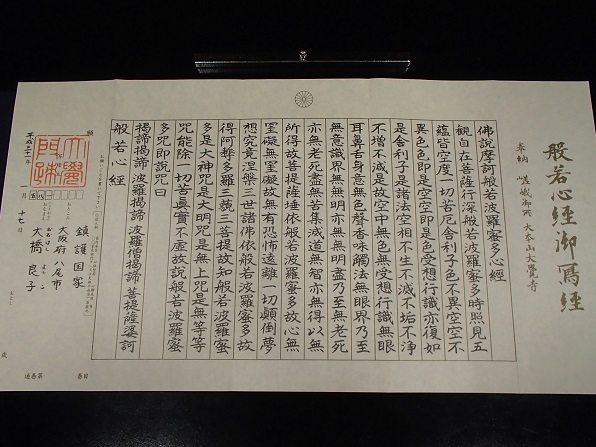 般若心經御寫經
奉納 嵯峨御所 大本山大覺寺
佛說摩訶般若波羅蜜多心經
觀自在菩薩行深般若波羅蜜多時照見五
蘊皆空度一切苦厄舍利子色不異空空不
異色色即是空空即是色受想行識亦復如
是舍利子是諸法空相不生不滅不垢不淨
不增不減是故空中無色無受想行識無眼
耳鼻舌身意無色聲香味觸法無眼界乃至
無意識界無無明亦無無明盡乃至無老死
亦無老死盡無苦集滅道無智亦無得以無
所得故菩提薩埵依般若波羅蜜多故心無
罣礙無罣礙故無有恐怖遠離一切顛倒夢
想究竟涅槃三世諸佛依般若波羅蜜多故
得阿耨多羅三藐三菩提故知般若波羅蜜
多是大神咒是大明咒是無上咒是無等等
咒能除一切苦眞實不虛故說般若波羅蜜
多咒即說咒曰
揭諦揭諦 波羅揭諦 波羅僧揭諦 菩提薩婆訶
般若心經
願
鎮護国家
大阪府八尾市
大橋良子
平成 年 一月 十七日
歳